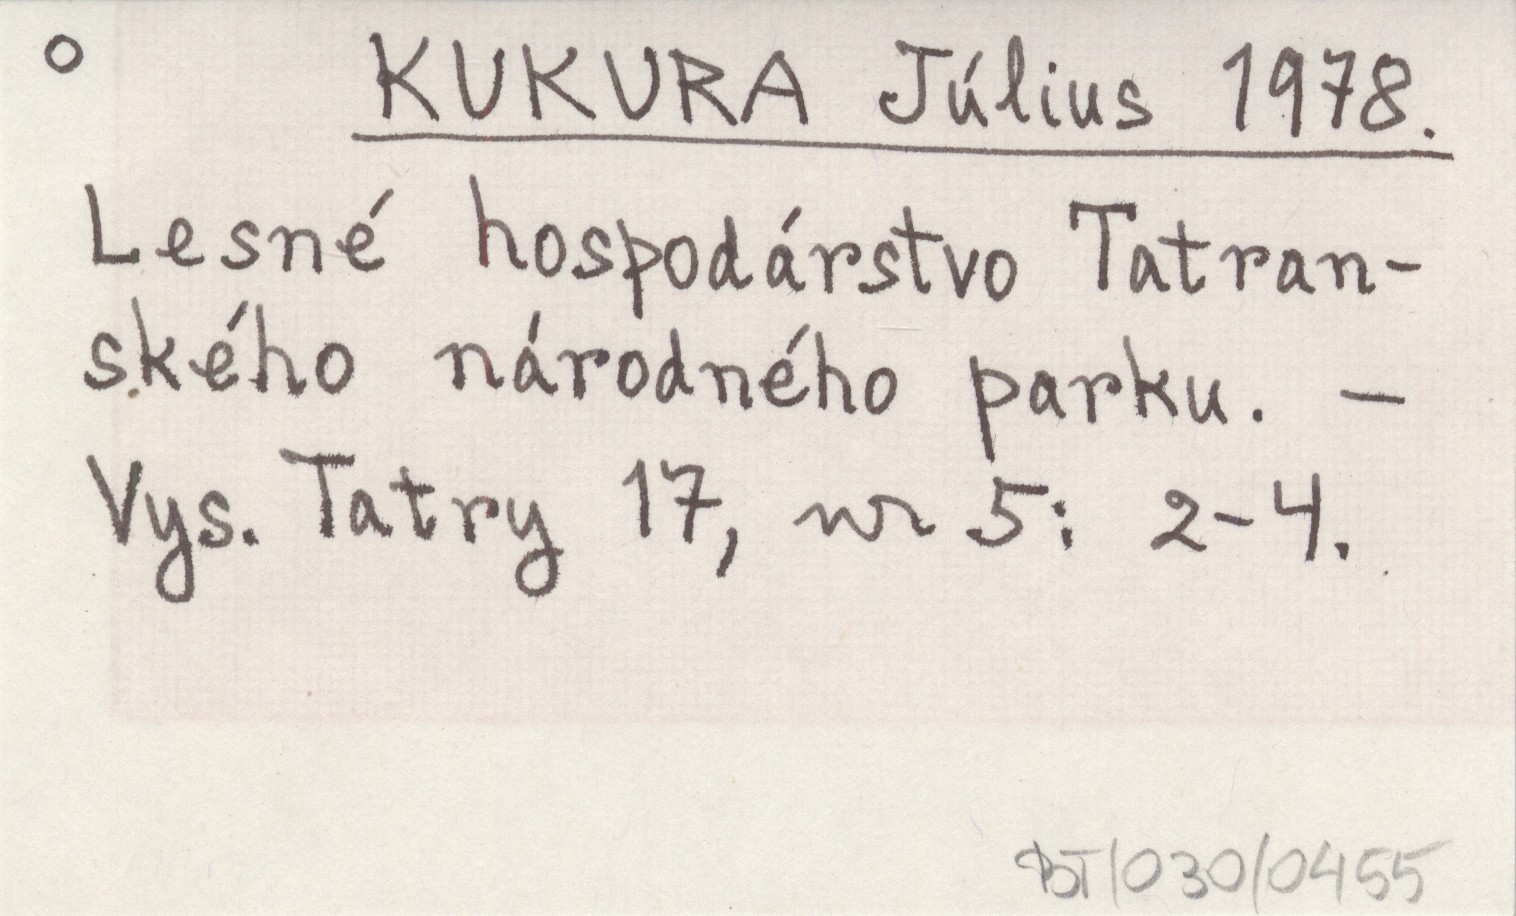 KUKURA Július 1978.
Lesné hospodárstvo Tatran-
ského národného parku. –
Vys. Tatry 17, nr 5: 2-4.
BT/030/0455